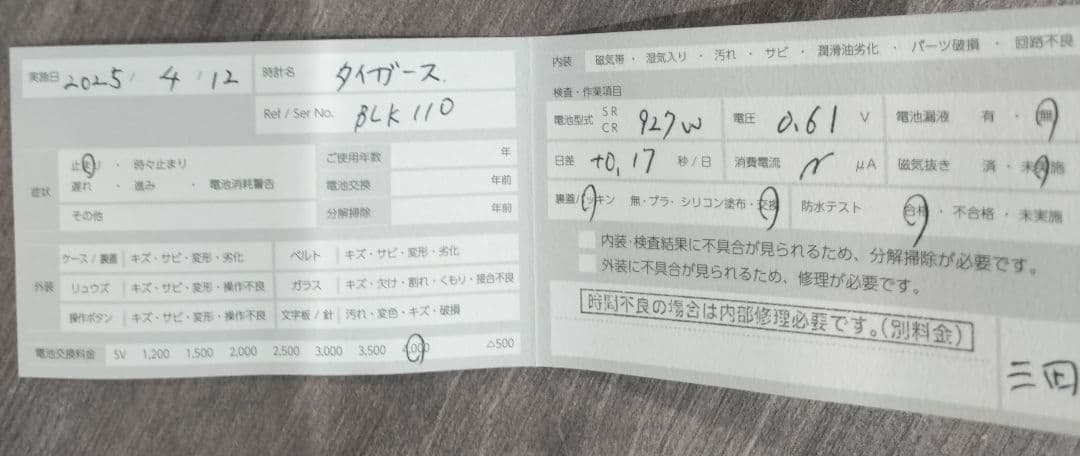 実施日 2025 / 4 / 12 時計名 タイガース
Ref / Ser No. BLK 110
症状 止まり ・ 時々止まり
遅れ ・ 進み ・ 電池消耗警告
その他
ご使用年数 年
電池交換 年前
分解掃除 年前
外装 ケース / 裏蓋 キズ・サビ・変形・劣化 ベルト キズ・サビ・変形・劣化
リュウズ キズ・サビ・変形・操作不良 ガラス キズ・欠け・割れ・くもり・接合不良
操作ボタン キズ・サビ・変形・操作不良 文字板 / 針 汚れ・変色・キズ・破損
電池交換料金 SV 1,200 1,500 2,000 2,500 3,000 3,500 4,000 △500
内装 磁気帯 ・ 湿気入り ・ 汚れ ・ サビ ・ 潤滑油劣化 ・ パーツ破損 ・ 回路不良
検査・作業項目
電池型式 SR CR 927W 電圧 0.61 V 電池漏液 有 ・ 無
日差 +0.17 秒 / 日 消費電流 μA 磁気抜き 済 ・ 未実施
裏蓋パッキン 無・プラ・シリコン塗布・交換 防水テスト 合格 ・ 不合格 ・ 未実施
内装・検査結果に不具合が見られるため、分解掃除が必要です。
外装に不具合が見られるため、修理が必要です。
時間不良の場合は内部修理必要です。(別料金)
三回